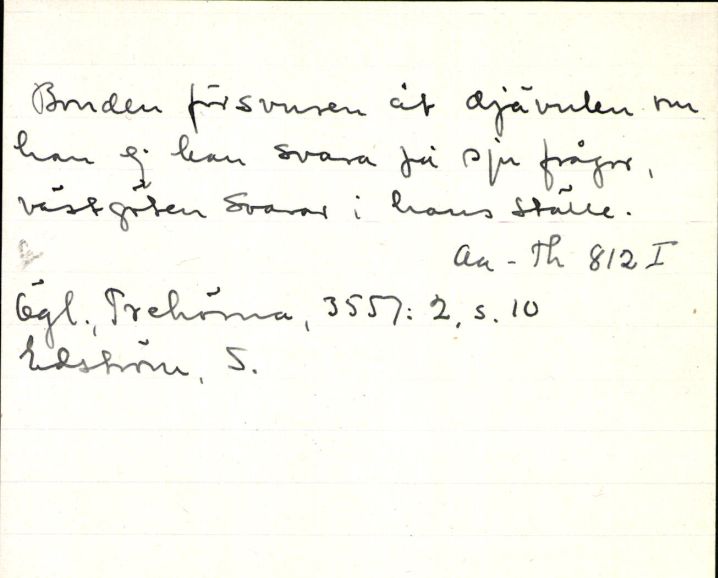 Bonden försvuren åt djävulen om
han ej kan svara på sju frågor,
västgöten svarar i hans ställe.
Aa - Th 812 I
Ögl., Trehörna, 3557: 2, s. 10
Edström, S.